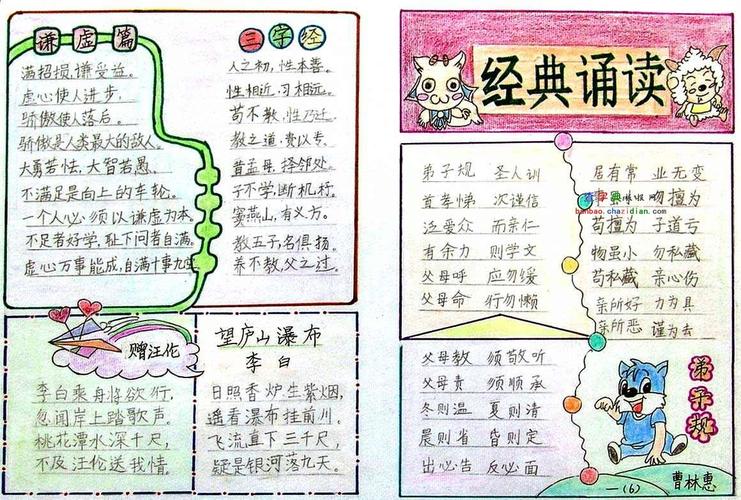 谦虚篇
满招损,谦受益。
虚心使人进步,
骄傲使人落后。
骄傲是人类最大的敌人。
大勇若怯,大智若愚。
不满足是向上的车轮。
一个人必须以谦虚为本。
不足者好学,耻下问者自满。
虚心万事能成,自满十事九空。
三字经
人之初,性本善。
性相近,习相远。
苟不教,性乃迁。
教之道,贵以专。
昔孟母,择邻处。
子不学,断机杼。
窦燕山,有义方。
教五子,名俱扬。
养不教,父之过。
赠汪伦
李白乘舟将欲行,
忽闻岸上踏歌声。
桃花潭水深千尺,
不及汪伦送我情。
望庐山瀑布
李白
日照香炉生紫烟,
遥看瀑布挂前川。
飞流直下三千尺,
疑是银河落九天。
经典诵读
弟子规 圣人训
首孝悌 次谨信
泛爱众 而亲仁
有余力 则学文
父母呼 应勿缓
父母命 行勿懒
居有常 业无变
勿擅为
苟擅为 子道亏
物虽小 勿私藏
苟私藏 亲心伤
亲所好 力为具
亲所恶 谨为去
banbao.chazidian.com
父母教 须敬听
父母责 须顺承
冬则温 夏则凊
晨则省 昏则定
出必告 反必面
弟子规
一(6) 曹林惠